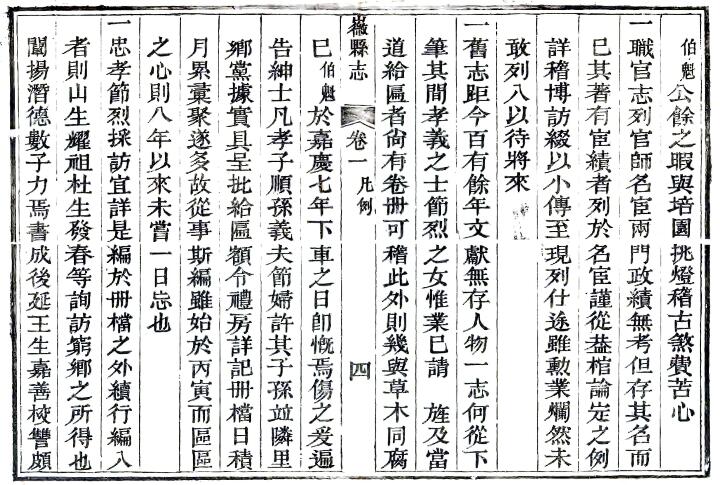 伯魁公餘之暇與培園挑燈稽古煞費苦心
一職官志列官師名宦兩門政績無考但存其名而
已其著有宦績者列於名宦謹從葢棺論定之例
詳稽博訪綴以小傳至現列仕途雖勳業爛然未
敢列入以待將來
一舊志距今百有餘年文獻無存人物一志何從下
筆其間孝義之士節烈之女惟業已請 旌及當
道給區者尙有卷册可稽此外則幾與草木同腐
縣志 卷一 凡例 四
已伯魁於嘉慶七年下車之日卽慨焉傷之爰遍
告紳士凡孝子順孫義夫節婦許其子孫並隣里
鄉黨據實具呈批給區額令禮房詳記册檔日積
月累彚聚遂多故從事斯編雖始於丙寅而區區
之心則八年以來未嘗一日忘也
一忠孝節烈採訪宜詳是編於册檔之外續行編入
者則山生耀祖杜生發春等詢訪窮鄉之所得也
闡揚潛德數子力焉書成後延王生嘉善校讐頗